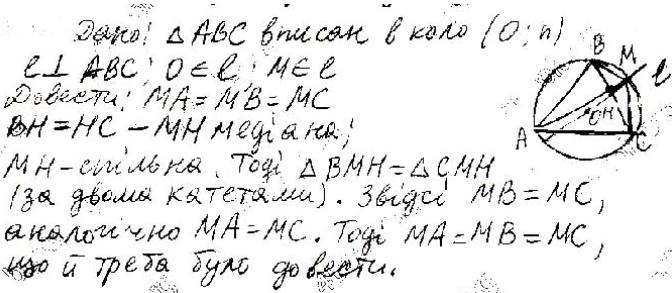 Дано: △ABC вписан в коло (O; r)
ℓ⊥ ABC; O∈ℓ; M∈ℓ
Довести: MA=MB=MC
BH=HC – MH медіана;
MH-спільна. Тоді △BMH=△CMH
(за двома катетами). Звідсі MB=MC,
аналогічно MA=MC. Тоді MA=MB=MC,
що й треба було довести.
B
M
ℓ
O
H
A
C